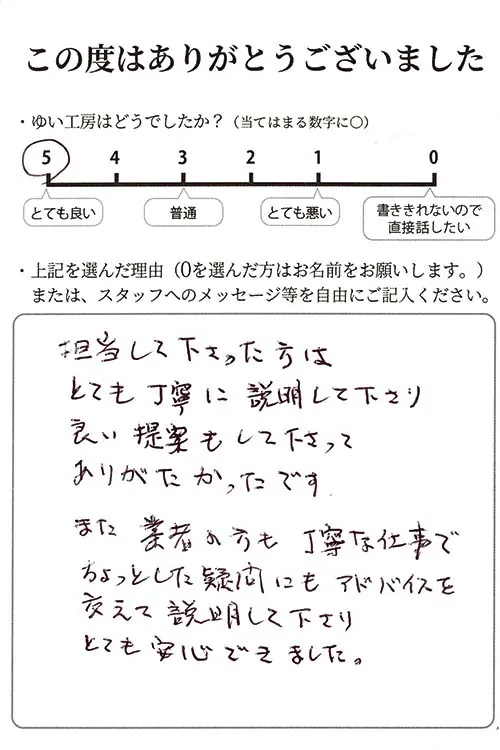 この度はありがとうございました
・ゆい工房はどうでしたか？（当てはまる数字に○）
5 4 3 2 1 0
とても良い 普通 とても悪い 書ききれないので直接話したい
・上記を選んだ理由（0を選んだ方はお名前をお願いします。）
または、スタッフへのメッセージ等を自由にご記入ください。
担当して下さった方は
とても丁寧に説明して下さり
良い提案もして下さって
ありがたかったです
また業者の方も丁寧な仕事で
ちょっとした疑問にもアドバイスを
交えて説明して下さり
とても安心できました。